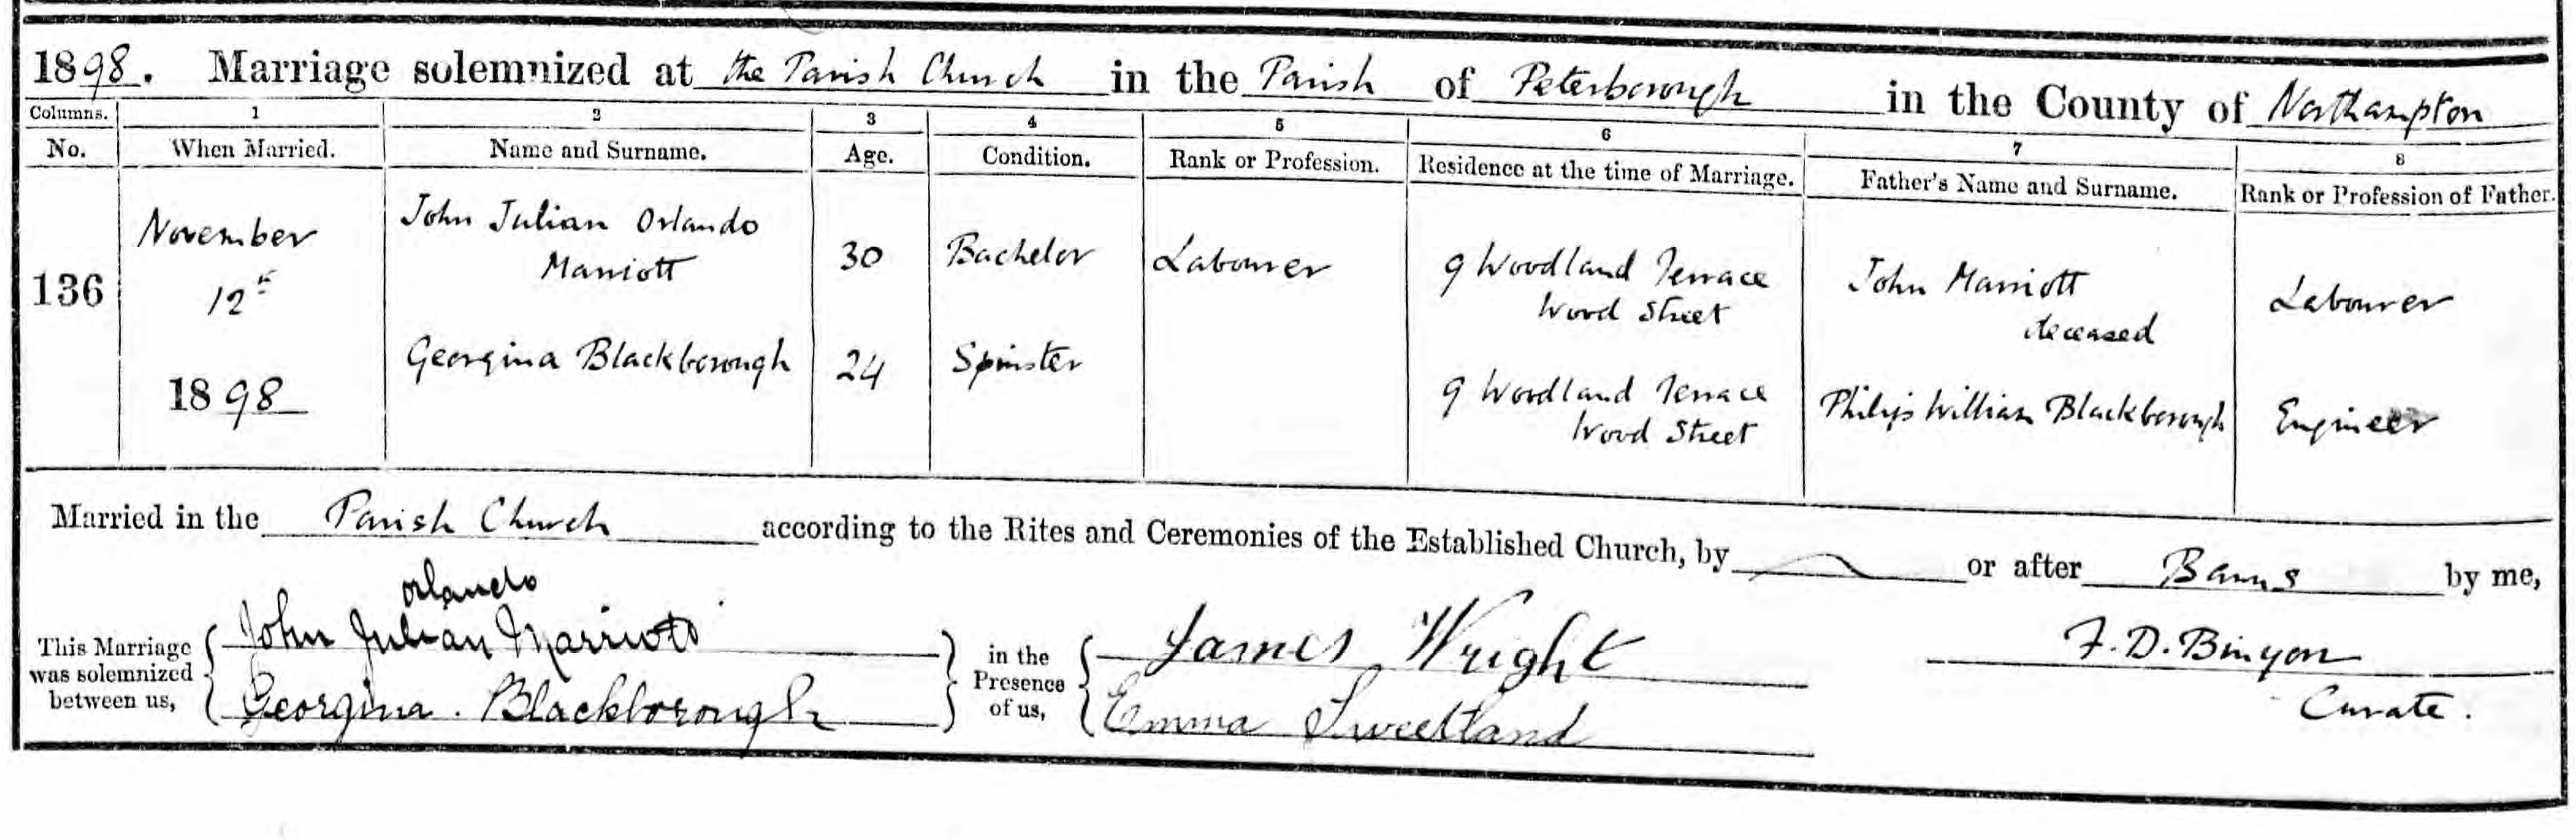 1898. Marriage solemnized at the Parish Church in the Parish of Peterborough in the County of Northampton
Columns. 1 2 3 4 5 6 7 8
No. When Married. Name and Surname. Age. Condition. Rank or Profession. Residence at the time of Marriage. Father's Name and Surname. Rank or Profession of Father.
136
November
12th
1898
John Julian Orlando
Marriott
30
Bachelor
Labourer
9 Woodland Terrace
Wood Street
John Marriott
deceased
Labourer
Georgina Blackborough
24
Spinster
9 Woodland Terrace
Wood Street
Philip William Blackborough
Engineer
Married in the Parish Church according to the Rites and Ceremonies of the Established Church, by or after Banns by me,
This Marriage
was solemnized
between us,
Orlando
John Julian Marriott
Georgina. Blackborough
in the
Presence
of us,
James Wright
Emma Sweetland
F. D. Binyon
Curate.